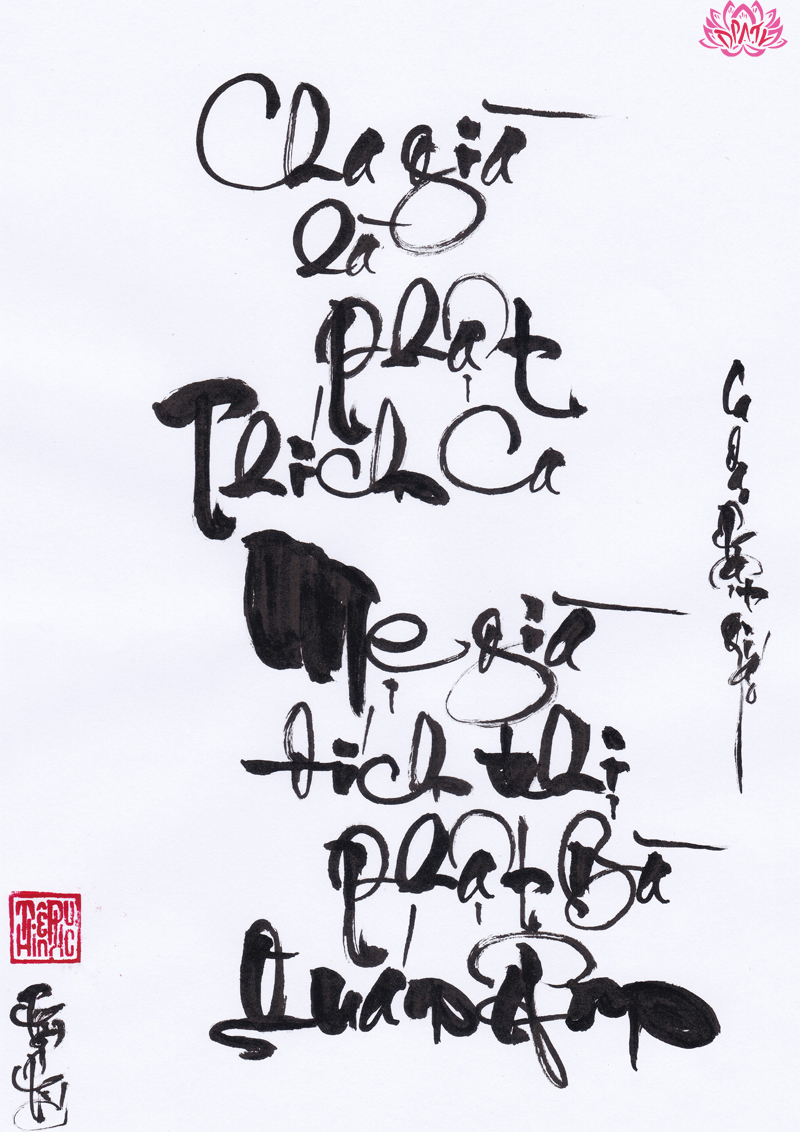 Cha già
là
phật
Thích Ca
Mẹ già
tích thị
phật Bà
Quán Âm
Ca
dao
Phật
giáo